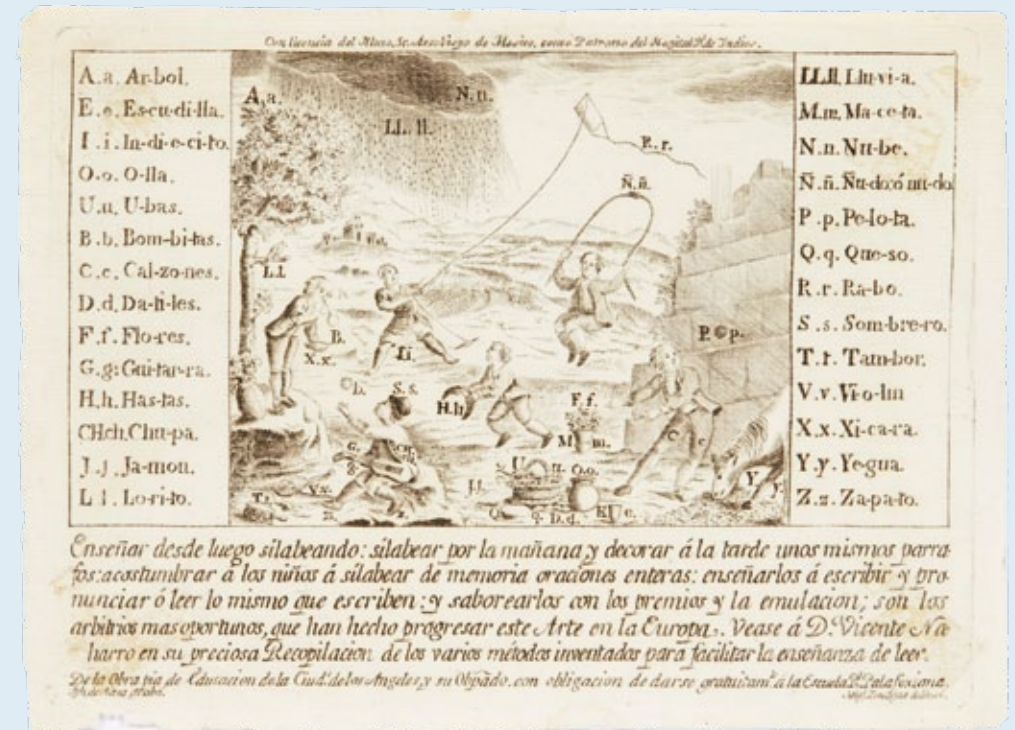 Con licencia del Illmo. Sr. Arzobispo de Mexico, como Patrono del Hospital Rl. de Indios.
A.a. Ar-bol.
E.e. Es-cu-di-lla.
I.i. In-di-e-ci-to.
O.o. O-lla.
U.u. U-bas.
B.b. Bom-bi-tas.
C.c. Cal-zo-nes.
D.d. Da-ti-les.
F.f. Flo-res.
G.g. Gui-tar-ra.
H.h. Has-tas.
CH.ch. Chu-pa.
J.j. Ja-mon.
L.l. Lo-ri-to.
A.a.
N.n.
LL.ll.
R.r.
Ñ.ñ.
L.l.
B.
X.x.
I.i.
P.p.
b.
S.s.
H.h.
F.f.
C c
M m.
G.g.
U. u.
O.o.
J.j.
V.v.
T.t.
Y. y.
Q. q. D.d.
E e.
LL.ll. Llu-vi-a.
M.m. Ma-ce-ta.
N.n. Nu-be.
Ñ.ñ. Ñu-do: ó nu-do
P.p. Pe-lo-ta.
Q.q. Que-so.
R.r. Ra-bo.
S.s. Som-bre-ro.
T.t. Tam-bor.
V.v. Vi-o-lin
X.x. Xi-ca-ra.
Y.y. Ye-gua.
Z.z. Za-pa-to.
Enseñar desde luego silabeando: silabear por la mañana, y decorar á la tarde unos mismos parra-
fos: acostumbrar á los niños á silabear de memoria oraciones enteras: enseñarlos á escribir y pro-
nunciar ó leer lo mismo que escriben: y saborearlos con los premios y la emulacion; son los
arbitrios mas oportunos, que han hecho progresar este Arte en la Europa. Vease á D. Vicente Na-
harro en su preciosa Recopilacion de los varios métodos inventados para facilitar la enseñanza de leer.
De la Obra pia de Educacion de la Ciud. de los Angeles, y su Obpado. con obligacion de darse gratuitamte. á la Escuela Pa. Palafoxiana.